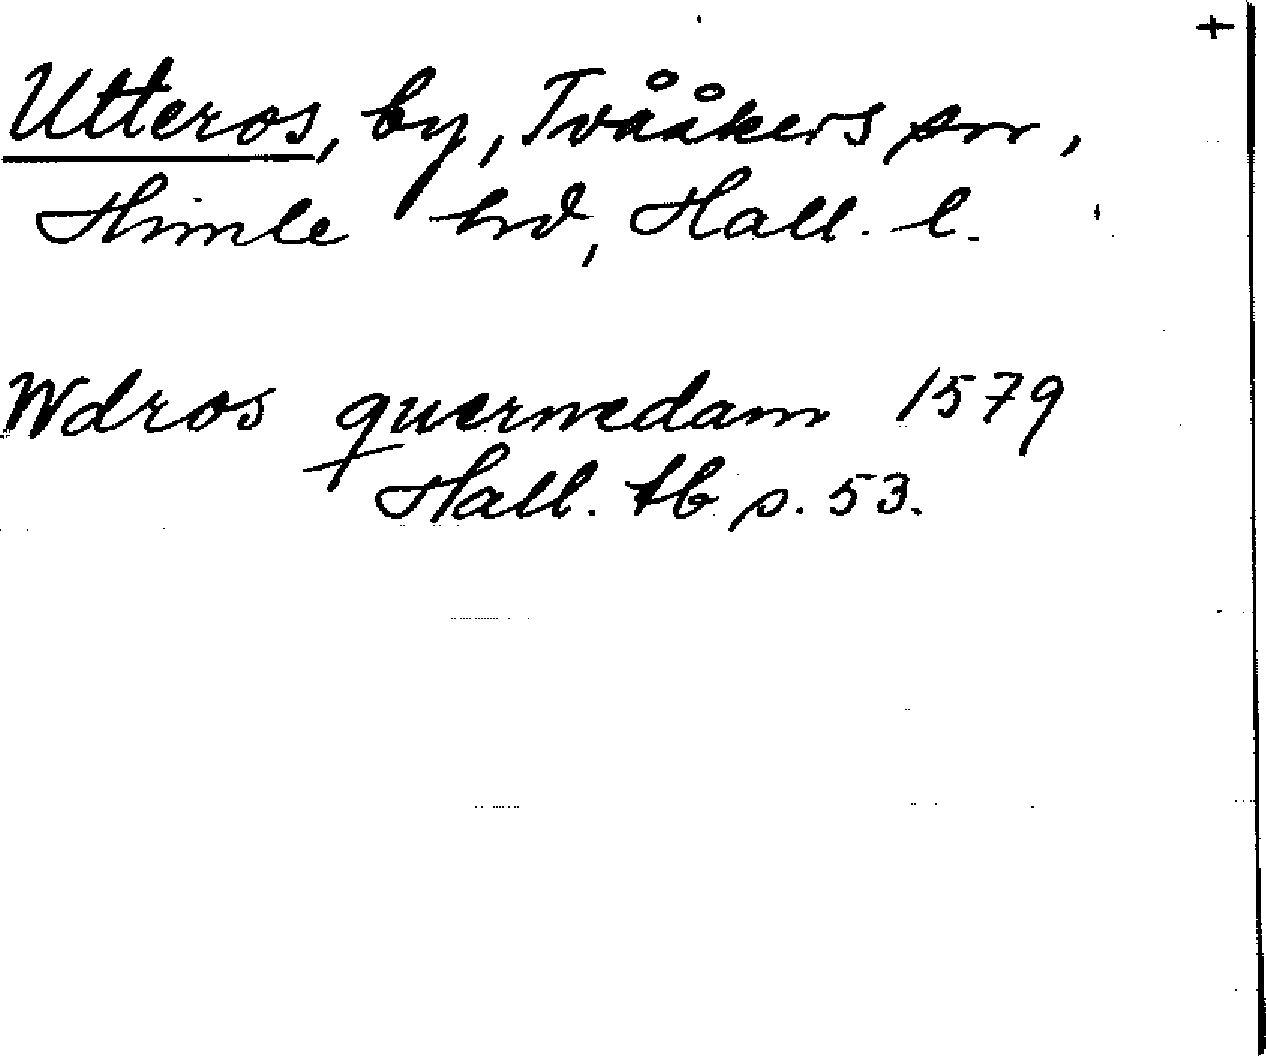 +
Utteros, by, Tvååkers sn,
Himle hd, Hall. l.
Wdros quernedam 1579
Hall. tb s. 53.